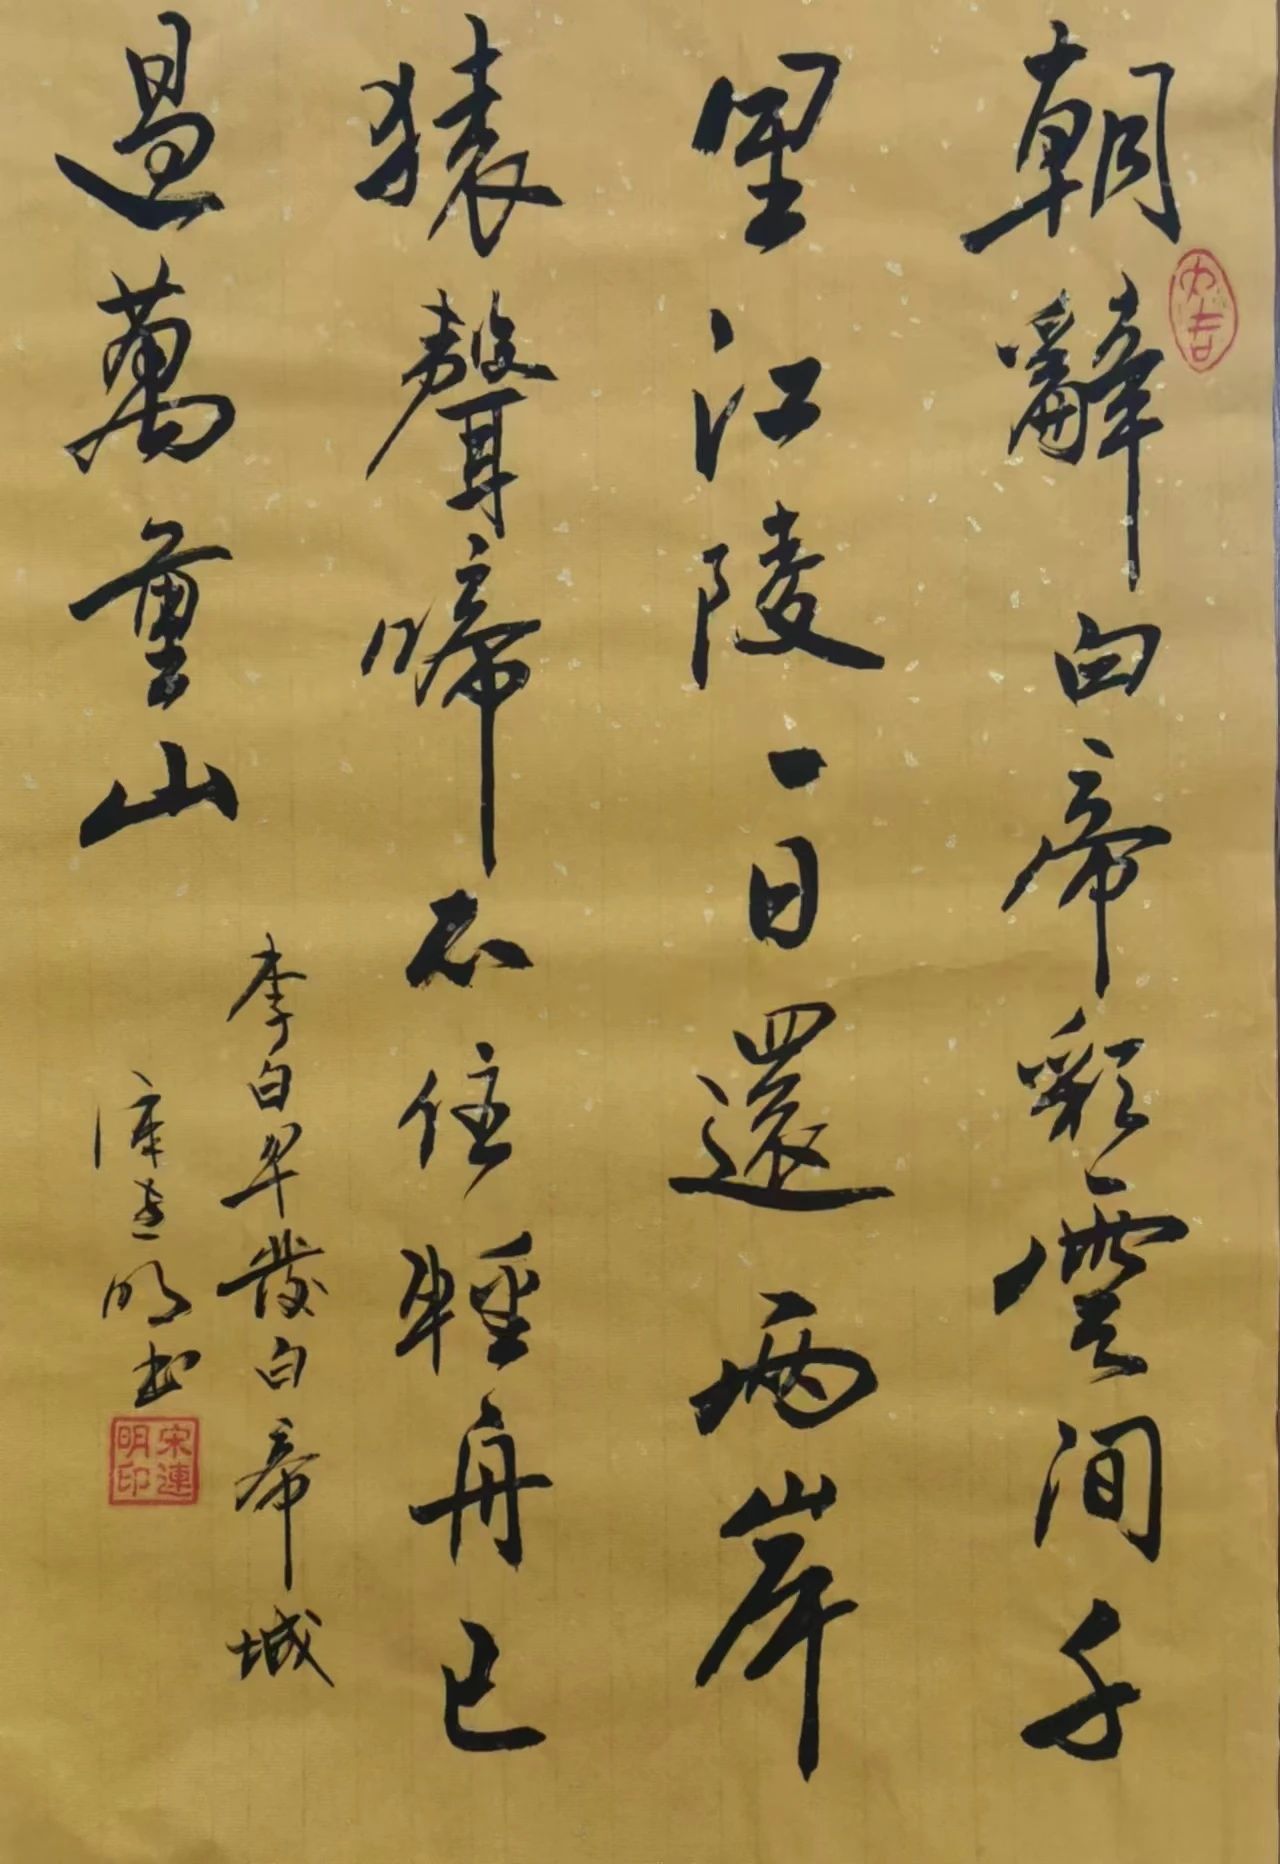 朝辭白帝彩雲間千
里江陵一日還兩岸
猿聲啼不住輕舟已
過萬重山
李白早發白帝城
連明書
宋連明印